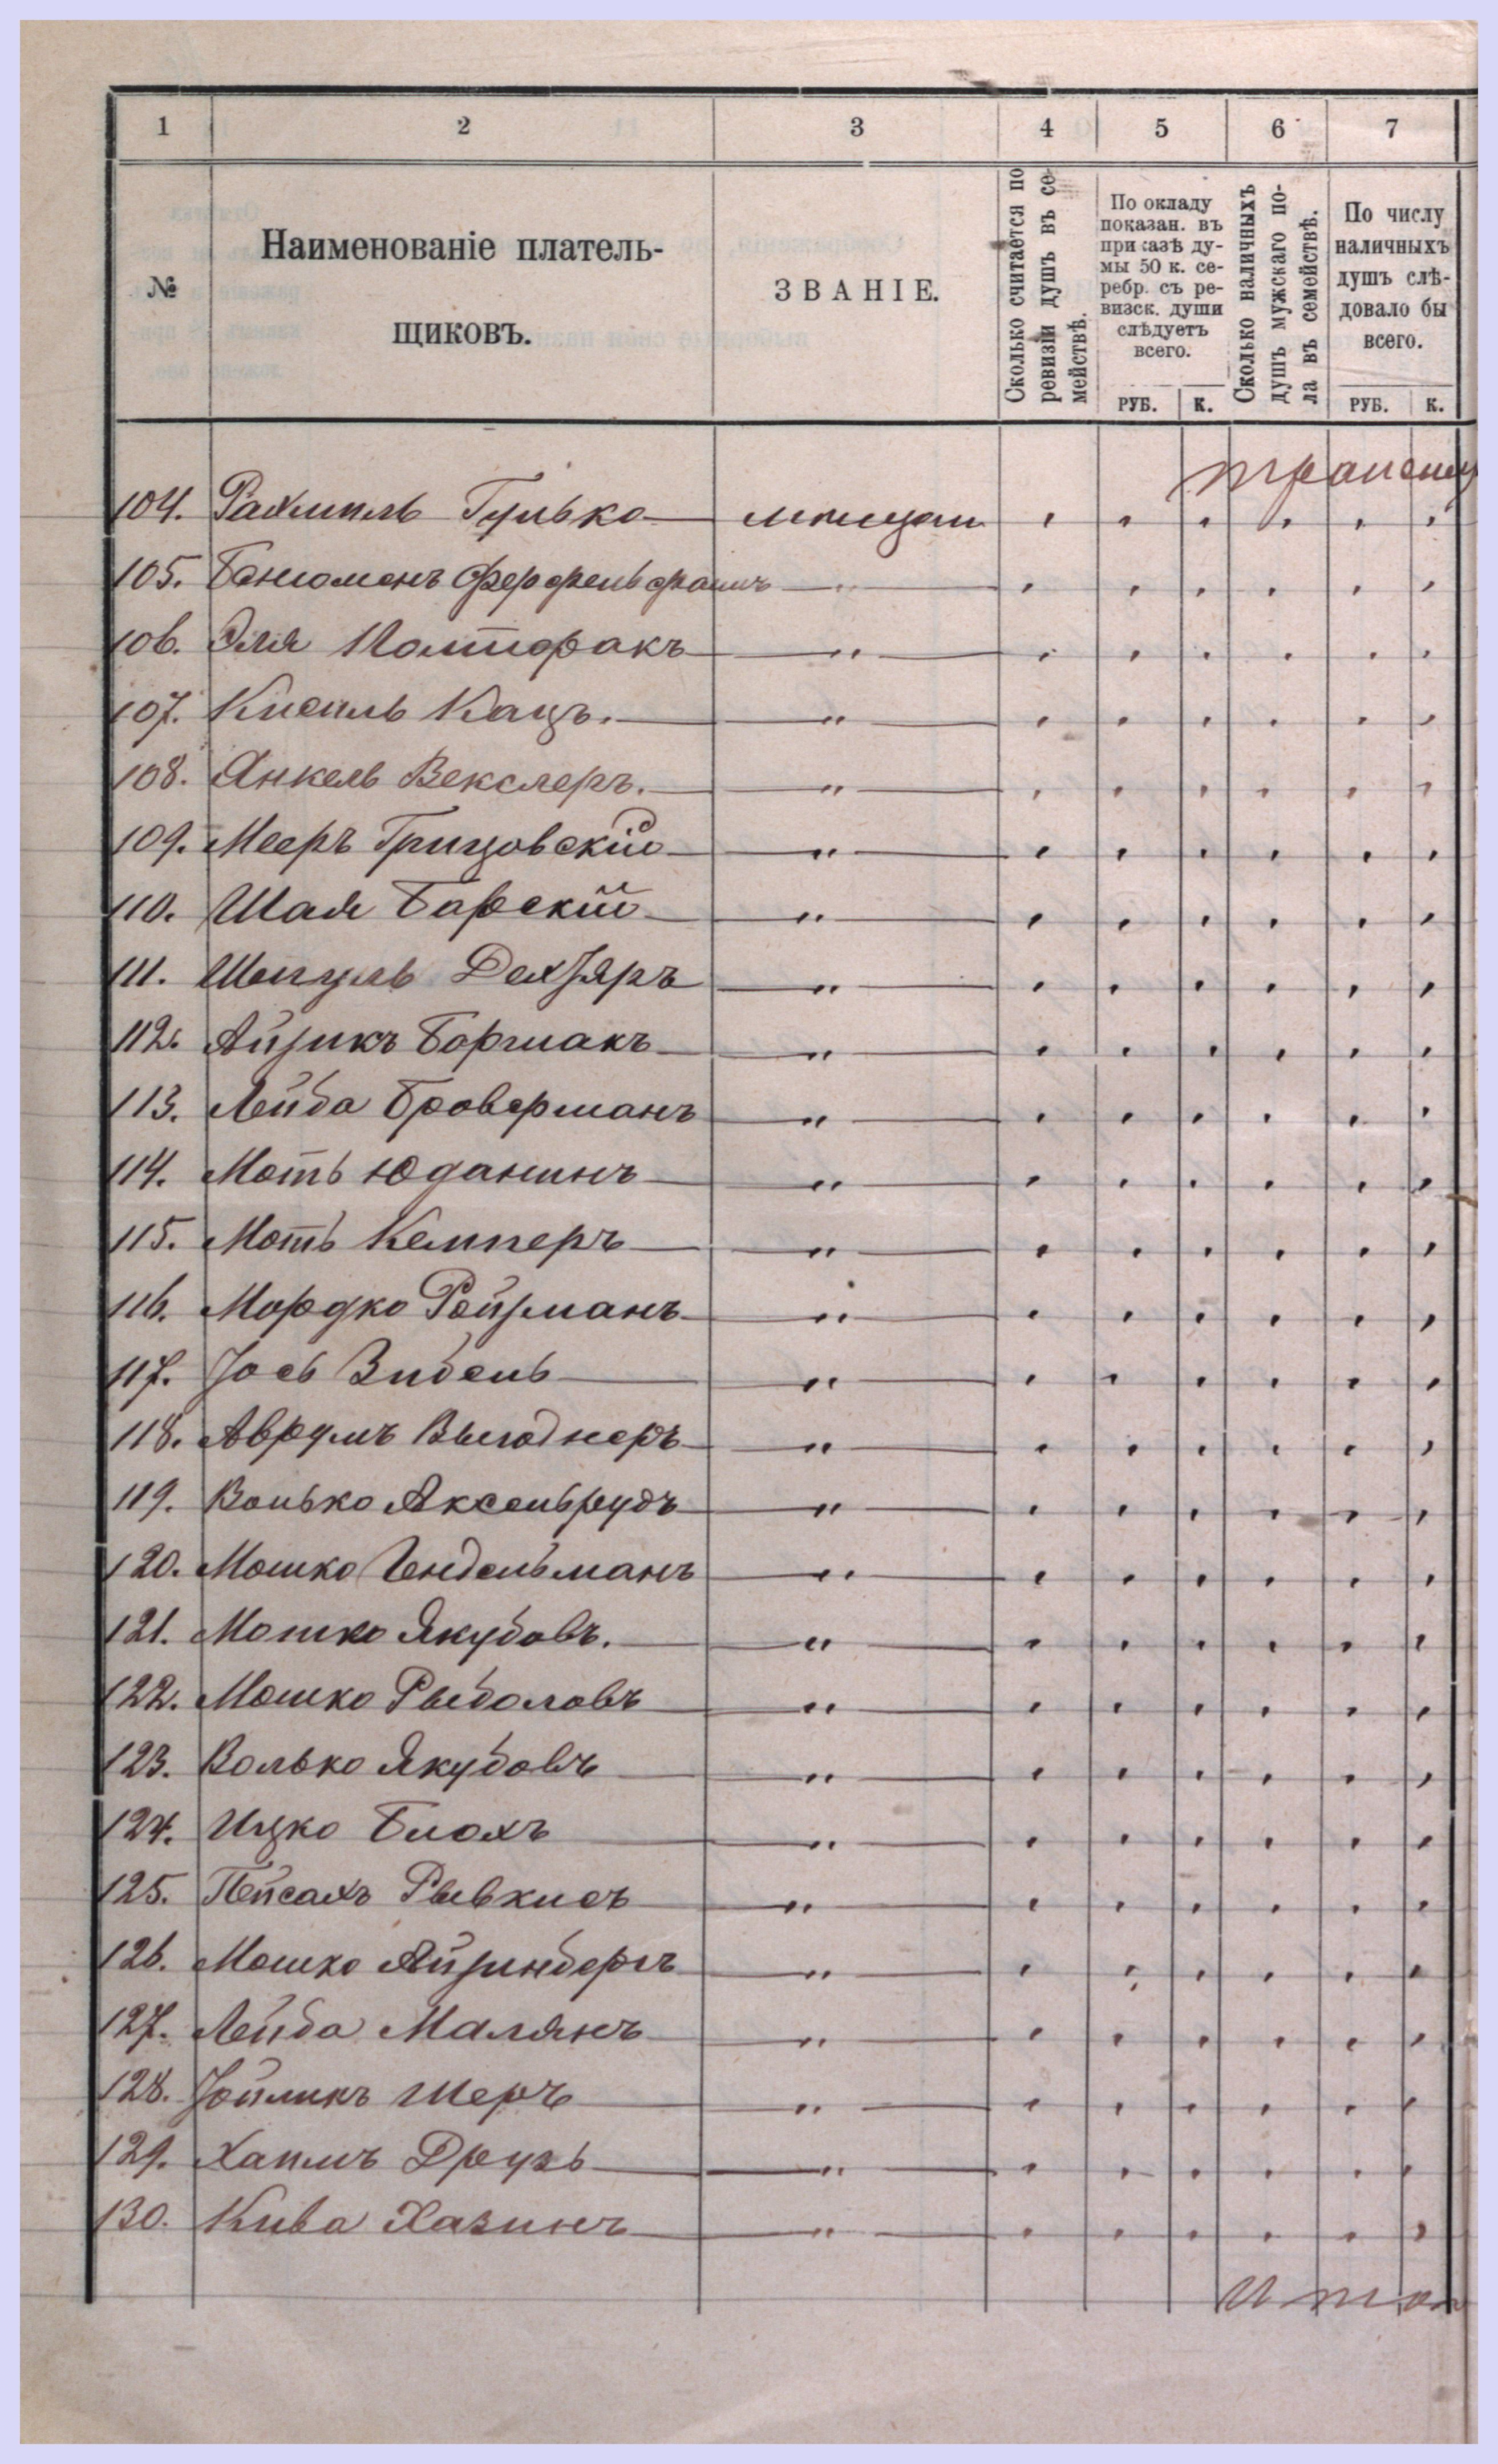 1 2 3 4 5 6 7
№
Наименованіе платель-
щиковъ.
ЗВАНІЕ.
Сколько считается по
ревизіи душъ въ се-
мействѣ.
По окладу
показан. въ
приказѣ ду-
мы 50 к. се-
ребр. съ ре-
визск. души
слѣдуетъ
всего.
РУБ. К.
Сколько наличныхъ
душъ мужскаго по-
ла въ семействѣ.
По числу
наличныхъ
душъ слѣ-
довало бы
всего.
РУБ. К.
104. Рахмиль Гулько
105. Бенюменъ
106. Эля Полторакъ „
107. Кисиль Кацъ. „
108. Янкель Векслеръ. „
109. Мееръ Грицовскій „
110. Шая Барскій „
111. Дехзяръ „
112. Айзикъ Боршакъ „
113. Лейба Броверманъ „
114. Моть Юданинъ „
115. Моть Кемперъ „
116. Мордко Ройзманъ „
117. Іось Зибель „
118. Аврумъ Выгоднеръ „
119. Волько Аксельрудъ „
120. Мошко Гендельманъ „
121. Мошко Якубовъ. „
122. Мошко Рыболовъ „
123. Волько Якубовъ „
124. Ицко Блохъ „
125. Пейсахъ Рывкисъ „
126. Мошко Айзинбергъ „
127. Лейба Малянъ „
128. Іойликъ Шеръ „
129. Хаимъ Друзь „
130. Кива Хазинъ „